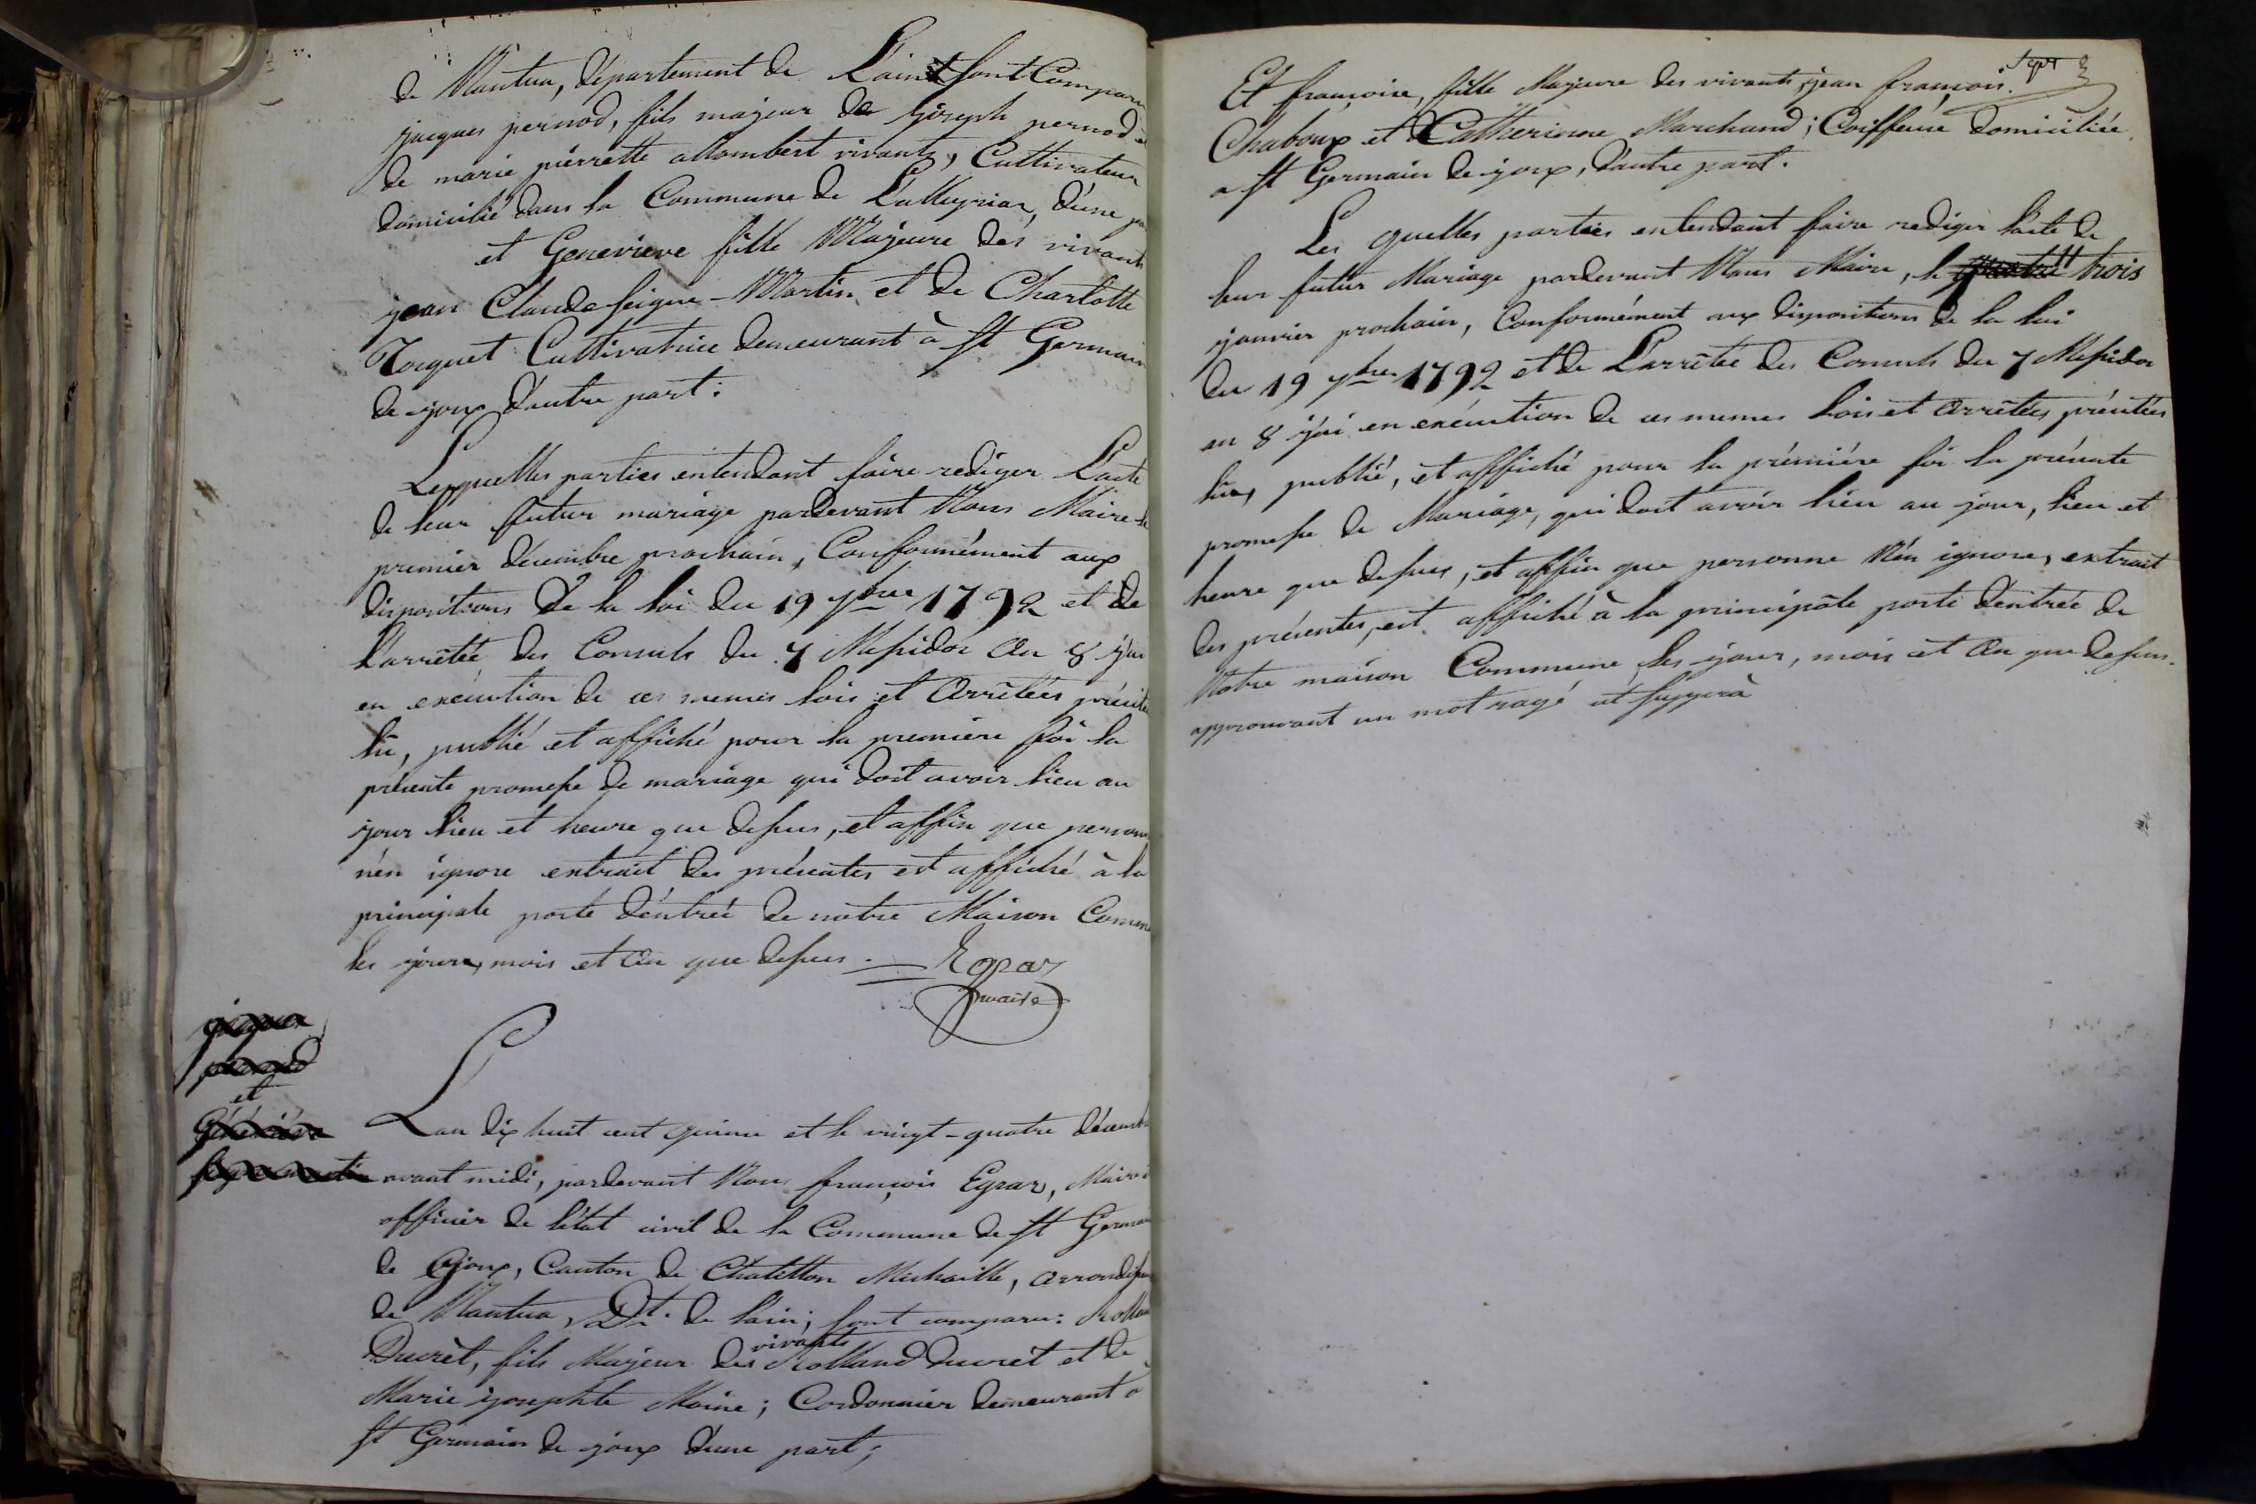 de Nantua, département de L'ain sont Comparu
jacques pernod, fils majeur de joseph pernod et
de marie pierrette allombert vivants, Cultivateur
domicilié dans la Commune de Lalleyriat, d'une part
et Genevieve fille Majeure des vivants
jean Claude seigne-Martin et de Charlotte
Tocquet Cultivatrice demeurant à St Germain
de joux d'autre part :
Lesquelles parties entendant faire rediger L'acte
de leur futur mariage pardevant Nous Maire le
premier décembre prochain, Conformément aux
dispositions de la loi du 19 7bre 1792 et de
L'arrêtée des Consuls du 7 Messidor an 8 j'ai
en exécution de ces memes lois et arrêtées précités
lu, publié et affiché pour la premiere foi la
présente promesse de mariage qui doit avoir lieu au
jour lieu et heure que dessus, et affin que personne
n'én ignore extrait des présentes est affiché à la
principale porte d'éntrée de notre Maison Commune
les jours, mois et an que dessus. Egraz
maire
jacques
pernod
et
Génévieve
seigne martin
Lan dix huit cent quinze et le vingt-quatre décembre
avant midi, pardevant Nous françois Egraz, Maire
officier de létat civil de la Commune de St Germain
de joux, Canton de Chatillon Michaille, arrondissement
de Nantua, Dt. de lain; sont comparu: Rolland
Ducrèt, fils Majeur des vivants Rolland Ducrèt et de
Marie josephte Moine; Cordonnier demeurant à
St Germain de joux d'une part;
Et françoise, fille Majeure des vivants, jean françois
Chaboux et Catherinne Marchand; Coiffeuse domiciliée
a St Germain de joux, d'autre part.
Les quelles parties entendant faire rediger l'acte de
leur futur Mariage pardevant Nous Maire, le quatre trois
janvier prochain, Conformément aux dispositions de la loi
du 19 7bre 1792 et de L'arrêtée des Consuls du 7 Messidor
an 8 j'ai en exécution de ces memes Lois et arrêtées précitées
lu, publié, et affiché pour la prémiére foi la présente
promesse de Mariage, qui doit avoir lieu au jour, lieu et
heure que dessus, et affin que personne N'én ignore, extrait
des présentes, est affiché à la principâle porte d'entrée de
Notre maison Commune les jour, mois et an que dessus.
approuvant un mot rayé